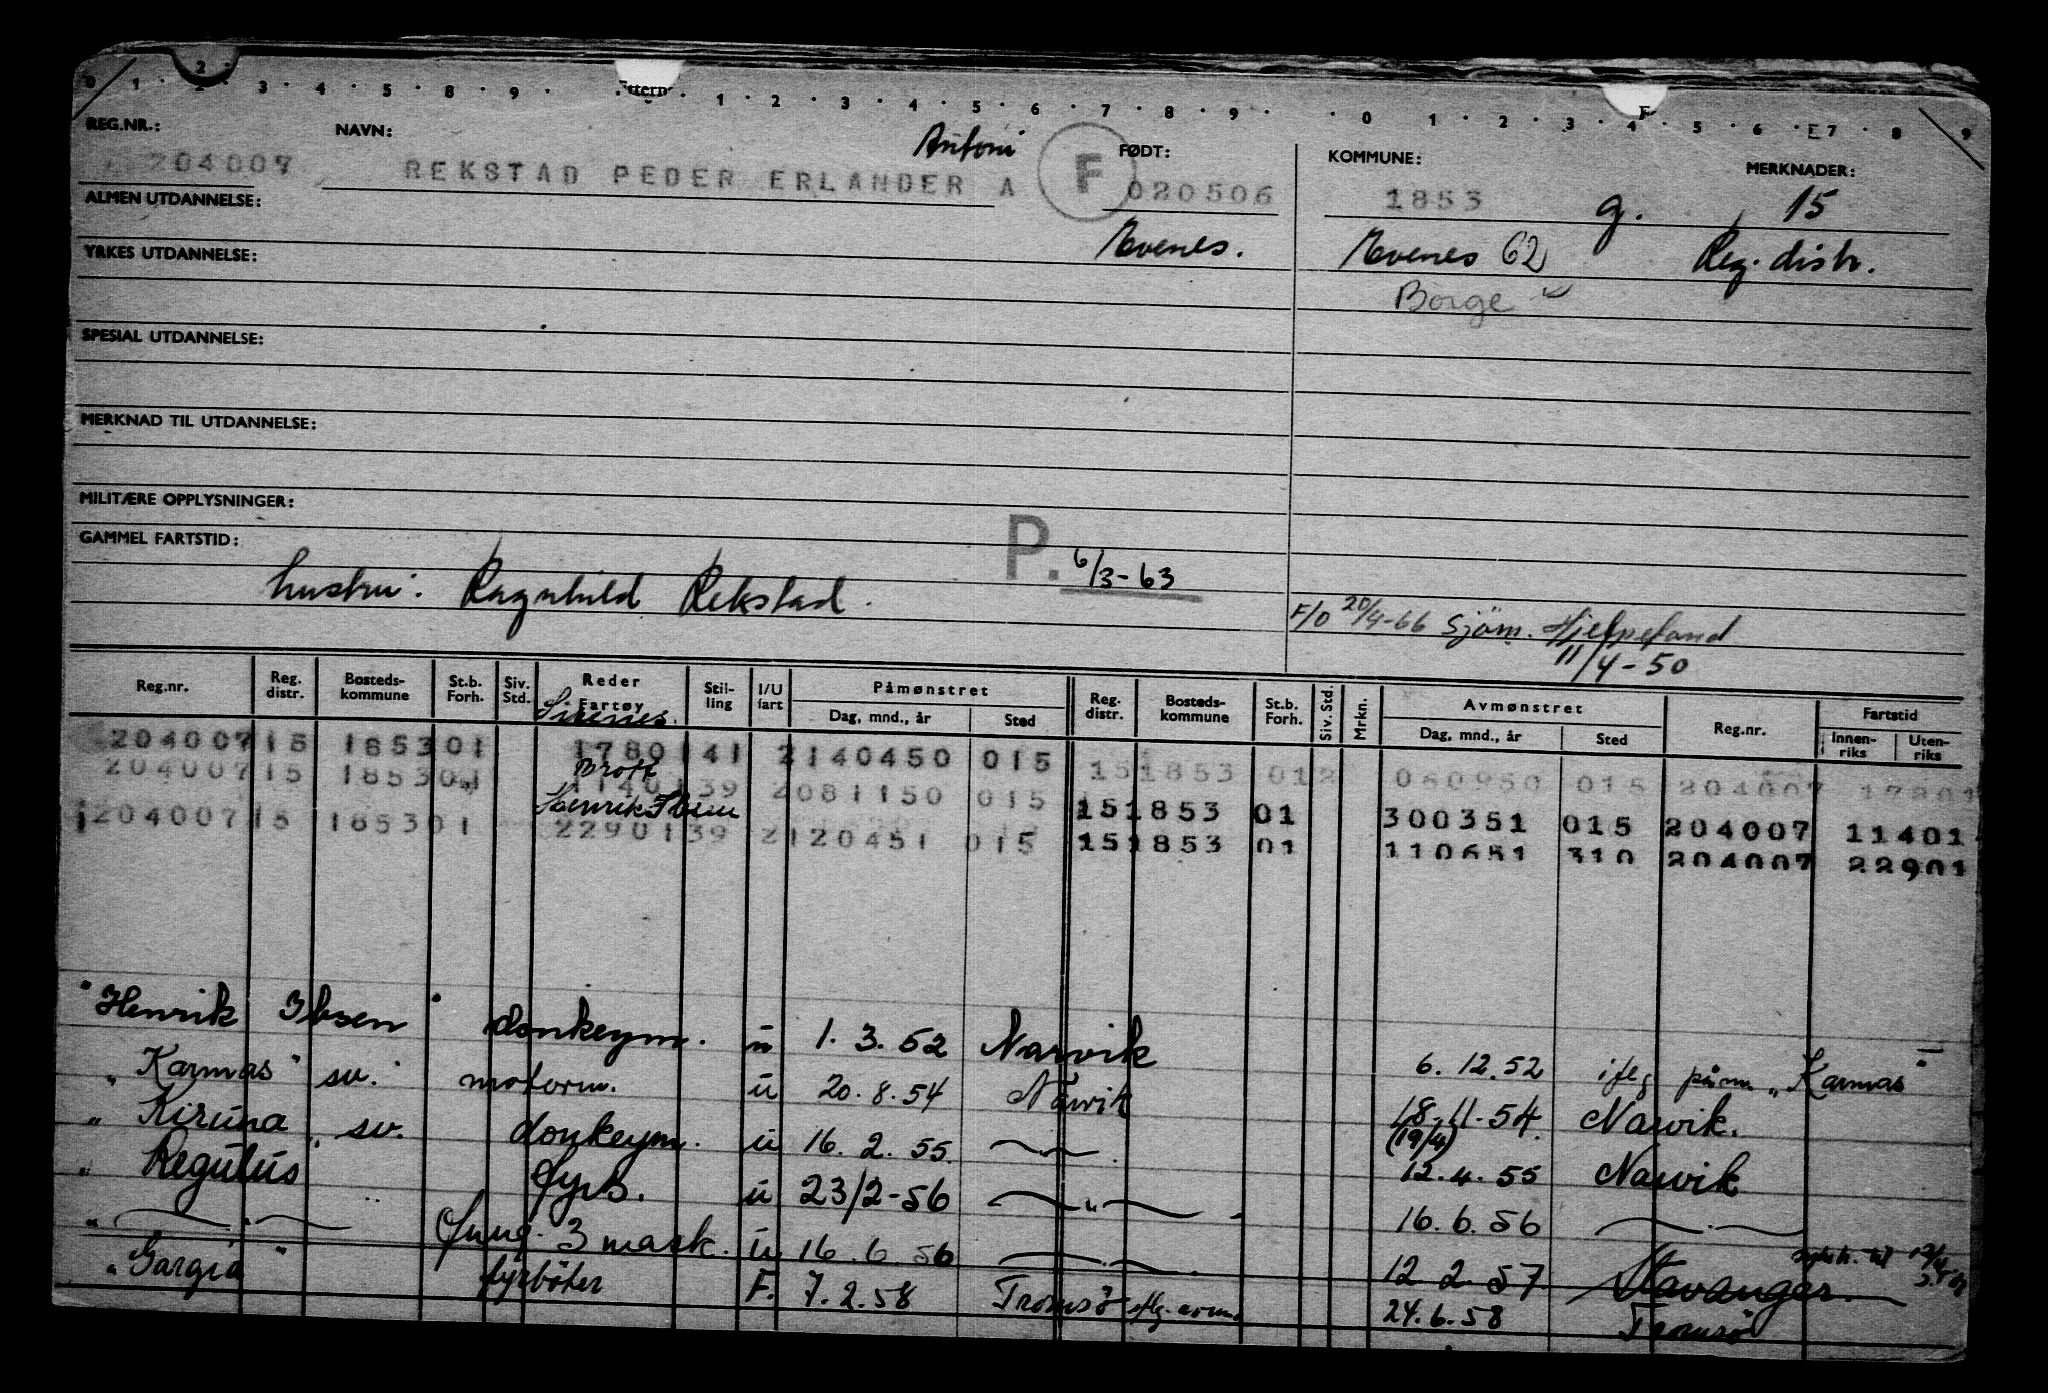 0 · 1 · 2 · 3 · 4 · 5 · 8 · 9 · ttern · 1 · 2 · 3 · 4 · 5 · 6 · 7 · 8 · 9 · · 0 · 1 · 2 · 3 · 4 · 5 · 6 · 7 · 8 · 9
REG.NR.: NAVN: Antoni FØDT: KOMMUNE: MERKNADER:
204007 REKSTAD PEDER ERLANDER A F 020506 1853 g. 15
ALMEN UTDANNELSE: Evenes. Evenes 62 Reg. distr.
YRKES UTDANNELSE: Borge
SPESIAL UTDANNELSE:
MERKNAD TIL UTDANNELSE:
MILITÆRE OPPLYSNINGER:
GAMMEL FARTSTID: P. 6/3-63
hustru: Ragnhild Rekstad. F/O 20/4-66 Sjøm. Hjelpefond
11/4-50
Reg.nr. Reg. distr. Bosteds-kommune St.b. Forh. Siv. Std. Reder Fartøy Stil-ling I/U fart Påmønstret Dag, mnd., år Sted Reg. distr. Bosteds-kommune St.b. Forh. Siv. Std. Mrkn. Avmønstret Dag, mnd., år Sted Reg.nr. Fartstid Innen-riks Uten-riks
204007 15 1853 01 1780 141 2 140450 015 15 1853 01 080950 015 204007 17801
204007 15 1853 01 Brott 1140 139 2 081150 015 15 1853 01 300351 015 204007 11401
204007 15 1853 01 Henrik Ibsen 2290 139 2 120451 015 15 1853 01 110651 310 204007 22901
"Henrik Ibsen" donkeym. u 1.3.52 Narvik 6.12.52 iflg påm "Karmas"
"Karmas" sv. motorm. u 20.8.54 Narvik 18.11.54. Narvik.
"Kiruna" sv. donkeym. u 16.2.55. (19/4) 12.4.55 Narvik
"Regulus" fyrb. u 23/2-56 16.6.56
fung. 3 mask. u 16.6.56 12.2.57. Stavanger.
"Gargia" fyrbøter F. 7.2.58 Tromsø 24.6.58 Tromsø